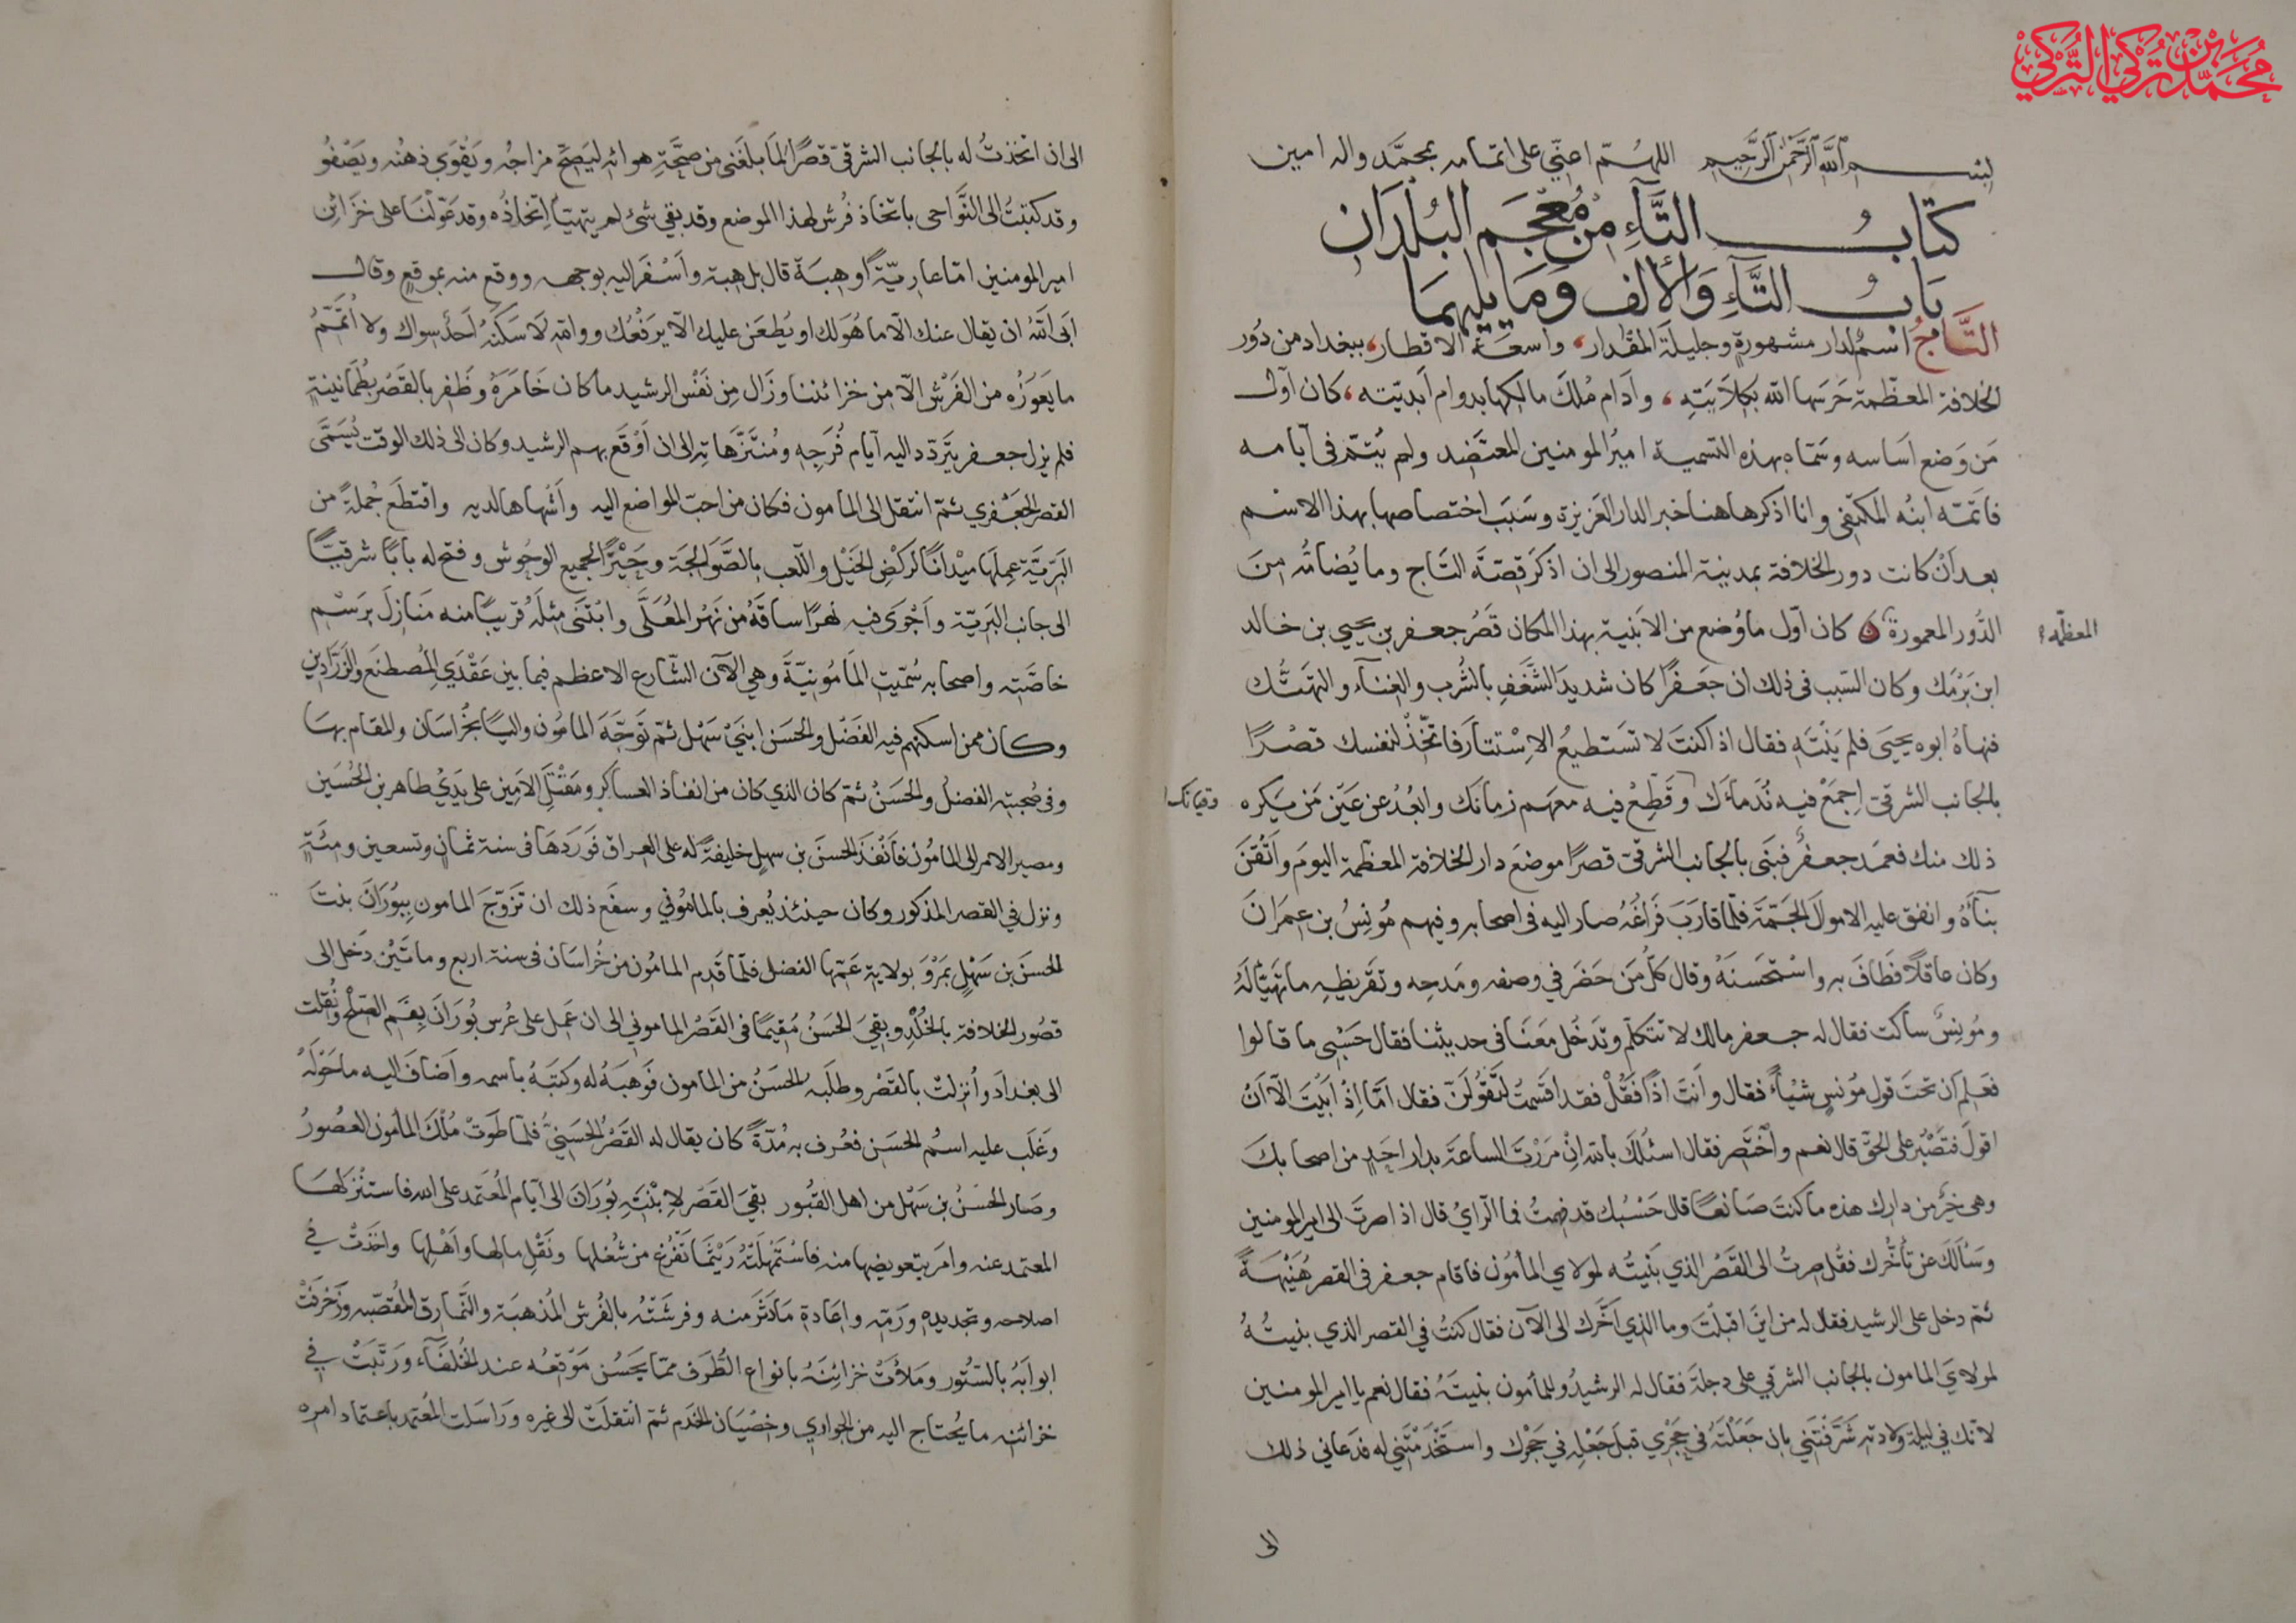 محمد بن تركي التركي
بسم الله الرحمن الرحيم اللهم اعني على اتمامه بمحمد واله امين
كتاب التاء من معجم البلدان
باب التاء والالف وما يليهما
التاج اسم لدار مشهورة وجليلة المقدار، واسعة الاقطار، ببغداد من دور
الخلافة المعظمة حرسها الله بكلايته، وادام ملك مالكها بدوام ابديته، كان اول
من وضع اساسه وسماه بهذه التسمية امير المومنين المعتضد ولم يتم في ايامه
فاتمه ابنه المكتفي وانا اذكر هاهنا خبر الدار العزيزة وسبب اختصاصها بهذا الاسم
بعد ان كانت دور الخلافة بمدينة المنصور الى ان اذكر قصة التاج وما يضامه من
الدور المعمورة كان اول ما وضع من الابنية بهذا المكان قصر جعفر بن يحيى بن خالد
المعظمة
ابن برمك وكان السبب في ذلك ان جعفرا كان شديد الشغف بالشرب والغناء والتهتك
فنهاه ابوه يحيى فلم ينته فقال اذا كنت لا تستطيع الاستتار فاتخذ لنفسك قصرا
بالجانب الشرقي اجمع فيه ندماءك وقطع فيه معهم زمانك وابعد عن عين من يكره
وقيانك
ذلك منك فعمد جعفر فبنى بالجانب الشرقي قصرا موضع دار الخلافة المعظمة اليوم واتقن
بناءه وانفق عليه الاموال الجمة فلما قارب فراغه صار اليه في اصحابه وفيهم مونس بن عمران
وكان عاقلا فطاف به واستحسنه وقال كل من حضر في وصفه ومدحه وتقريظه ما تهيأ له
ومونس ساكت فقال له جعفر مالك لا تتكلم وتدخل معنا في حديثنا فقال حسبي ما قالوا
فعلم ان تحت قول مونس شيئا فقال وانت اذا فقل فقد اقسمت لتقولن فقال اما اذ ابيت الا ان
اقول فتصبر على الحق قال نعم واختصر فقال اسئلك بالله ان مررت الساعة بدار احد من اصحابك
وهي خير من دارك هذه ما كنت صانعا قال حسبك قد فهمت فما الراي قال اذا صرت الى امير المومنين
وسالك عن تأخرك فقل صرت الى القصر الذي بنيته لمولاي المأمون فاقام جعفر في القصر هنيهة
ثم دخل على الرشيد فقال له من اين اقبلت وما الذي اخرك الى الآن فقال كنت في القصر الذي بنيته
لمولاي المامون بالجانب الشرقي على دجلة فقال له الرشيد وللمأمون بنيته فقال نعم يا امير المومنين
لانك في ليلة ولادته شرفتني بان جعلته في حجري قبل جعله في حجرك واستخدمتني له فدعاني ذلك
الى
الى ان اتخذت له بالجانب الشرقي قصرا لما بلغني من صحة هوائه ليصح مزاجه ويقوي ذهنه ويصفو
وقد كتبت الى النواحي باتخاذ فرش لهذا الموضع وقد بقي شئ لم يتهيأ اتخاذه وقد عولنا على خزائن
امير المومنين اما عارية او هبة قال بل هبة واسفر اليه بوجهه ووقع منه بموقع وقال
ابى الله ان يقال عنك الا ما هو لك او يطعن عليك الا يرفعك ووالله لا سكنه احد سواك ولا اتمم
ما يعوزه من الفرش الا من خزائننا وزال من نفس الرشيد ما كان خامره وظفر بالقصر بطمانينة
فلم يزل جعفر يتردد اليه ايام فرجه ومتنزهاته الى ان اوقع بهم الرشيد وكان الى ذلك الوقت يسمى
القصر الجعفري ثم انتقل الى المأمون فكان من احب المواضع اليه واشهاها لديه واقتطع جملة من
البرية عملها ميدانا لركض الخيل واللعب بالصوالجة وحيزا لجميع الوحوش وفتح له بابا شرقيا
الى جانب البرية واجرى فيه نهرا ساقه من نهر المعلى وابتنى مثله قريبا منه منازل برسم
خاصته واصحابه سميت المامونية وهي الآن الشارع الاعظم فيما بين عقدي المصطنع والزرادين
وكان ممن اسكنهم فيه الفضل والحسن ابني سهل ثم توجه المامون واليا بخراسان والمقام بها
وفي صحبته الفضل والحسن ثم كان الذي كان من انفاذ العساكر ومقتل الامين على يدي طاهر بن الحسين
ومصير الامر الى المامون فانفذ الحسن بن سهل خليفة له على العراق فوردها في سنة ثمان وتسعين ومئة
ونزل في القصر المذكور وكان حينئذ يعرف بالماموني وسفع ذلك ان تزوج المامون ببوران بنت
الحسن بن سهل بمرو بولاية عمها الفضل فلما قدم المامون من خراسان في سنة اربع ومائتين دخل الى
قصور الخلافة بالخلد وبقي الحسن مقيما في القصر الماموني الى ان عمل على عرس بوران بفم الصلح ونقلت
الى بغداد وانزلت بالقصر وطلبه الحسن من المامون فوهبه له وكتبه باسمه واضاف اليه ما حوله
وغلب عليه اسم الحسن فعرف به مدة كان يقال له القصر الحسني فلما طوت ملك المأمون العصور
وصار الحسن بن سهل من اهل القبور بقي القصر لابنته بوران الى ايام المعتمد على الله فاستنزلها
المعتمد عنه وامر بتعويضها منه فاستمهلته ريثما تفرغ من شغلها ونقل مالها واهلها واخذت في
اصلاحه وتجديده ورمه واعادة ما دثر منه وفرشته بالفرش المذهبة والنمارق المقصبه وزخرفت
ابوابه بالستور وملأت خزائنه بانواع الطرف مما يحسن موقعه عند الخلفاء ورتبت في
خزائنه ما يحتاج اليه من الجواري وخصيان الخدم ثم انتقلت الى غيره وراسلت المعتمد باعتماد امره